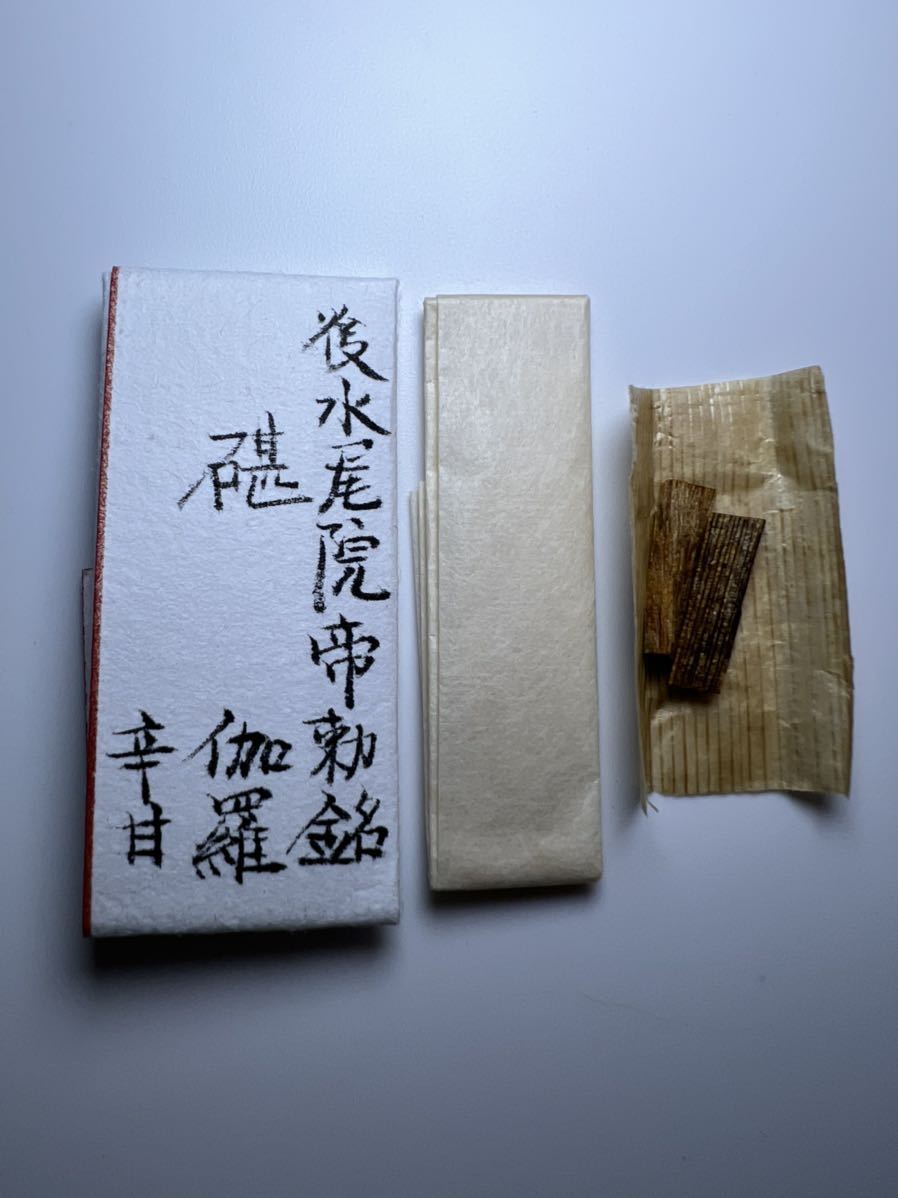 後水尾院帝勅銘
碪 伽羅
辛甘